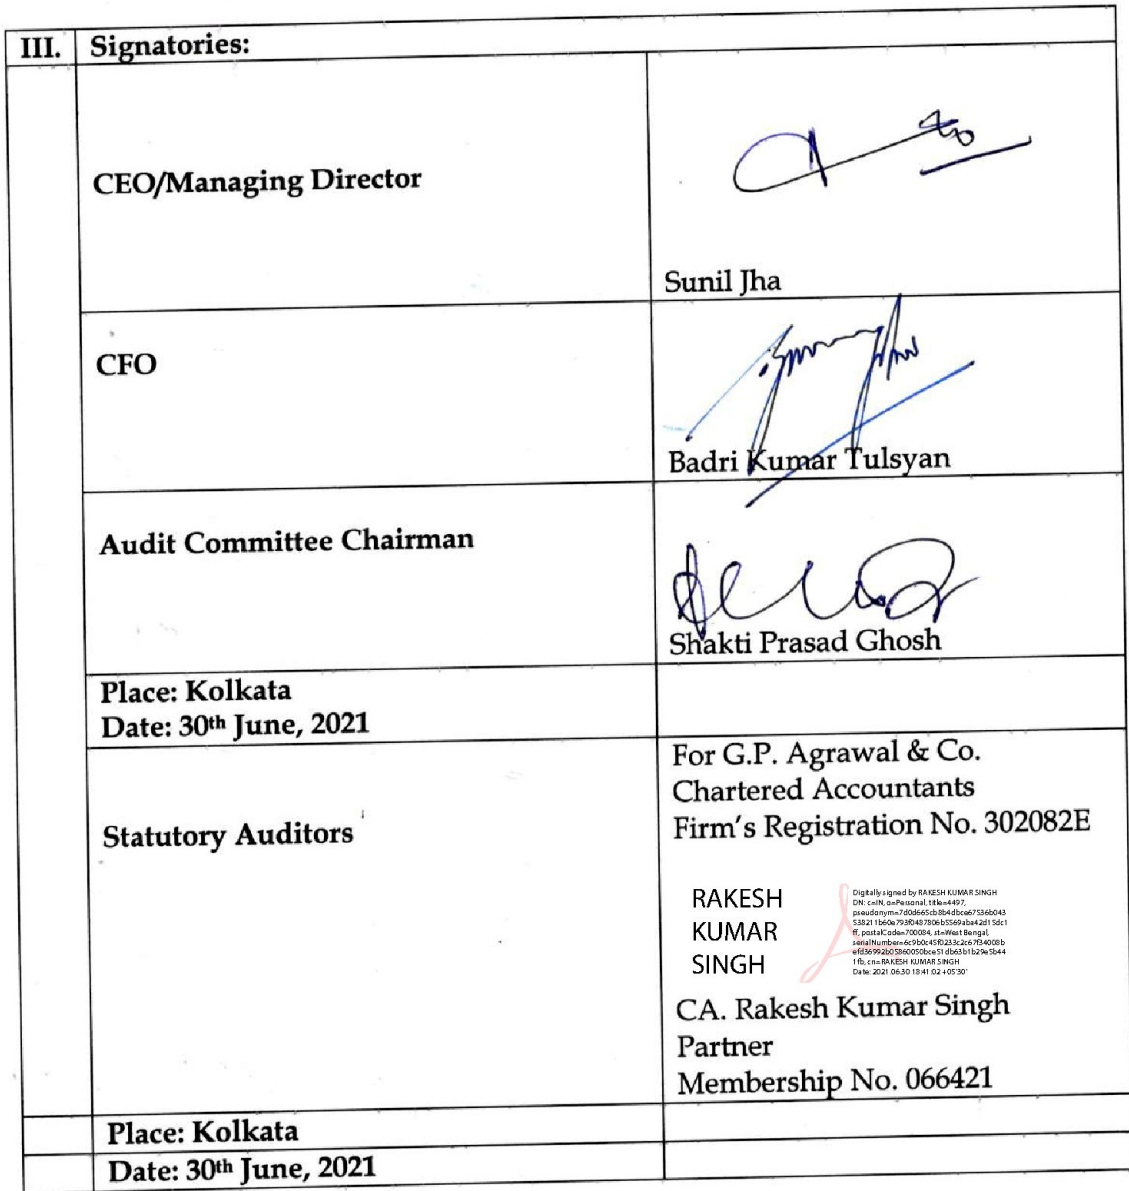 III. Signatories:
CEO/Managing Director
Sunil Jha
CFO
Badri Kumar Tulsyan
Audit Committee Chairman
Shakti Prasad Ghosh
Place: Kolkata
Date: 30th June, 2021
Statutory Auditors
For G.P. Agrawal & Co.
Chartered Accountants
Firm's Registration No. 302082E
RAKESH
KUMAR
SINGH
Digitally signed by RAKESH KUMAR SINGH
DN: c=IN, o=Personal, title=4497,
pseudonym=7d0d665cb8b4dbce67536b043
538211b60e793f0487806b5569aba42d15dc1
ff, postalCode=700084, st=West Bengal,
serialNumber=6c9b0c45f0233c2c67f34008b
efd36992b05860050bce51db63b1b29e5b44
1fb, cn=RAKESH KUMAR SINGH
Date: 2021.06.30 18:41:02 +05'30'
CA. Rakesh Kumar Singh
Partner
Membership No. 066421
Place: Kolkata
Date: 30th June, 2021